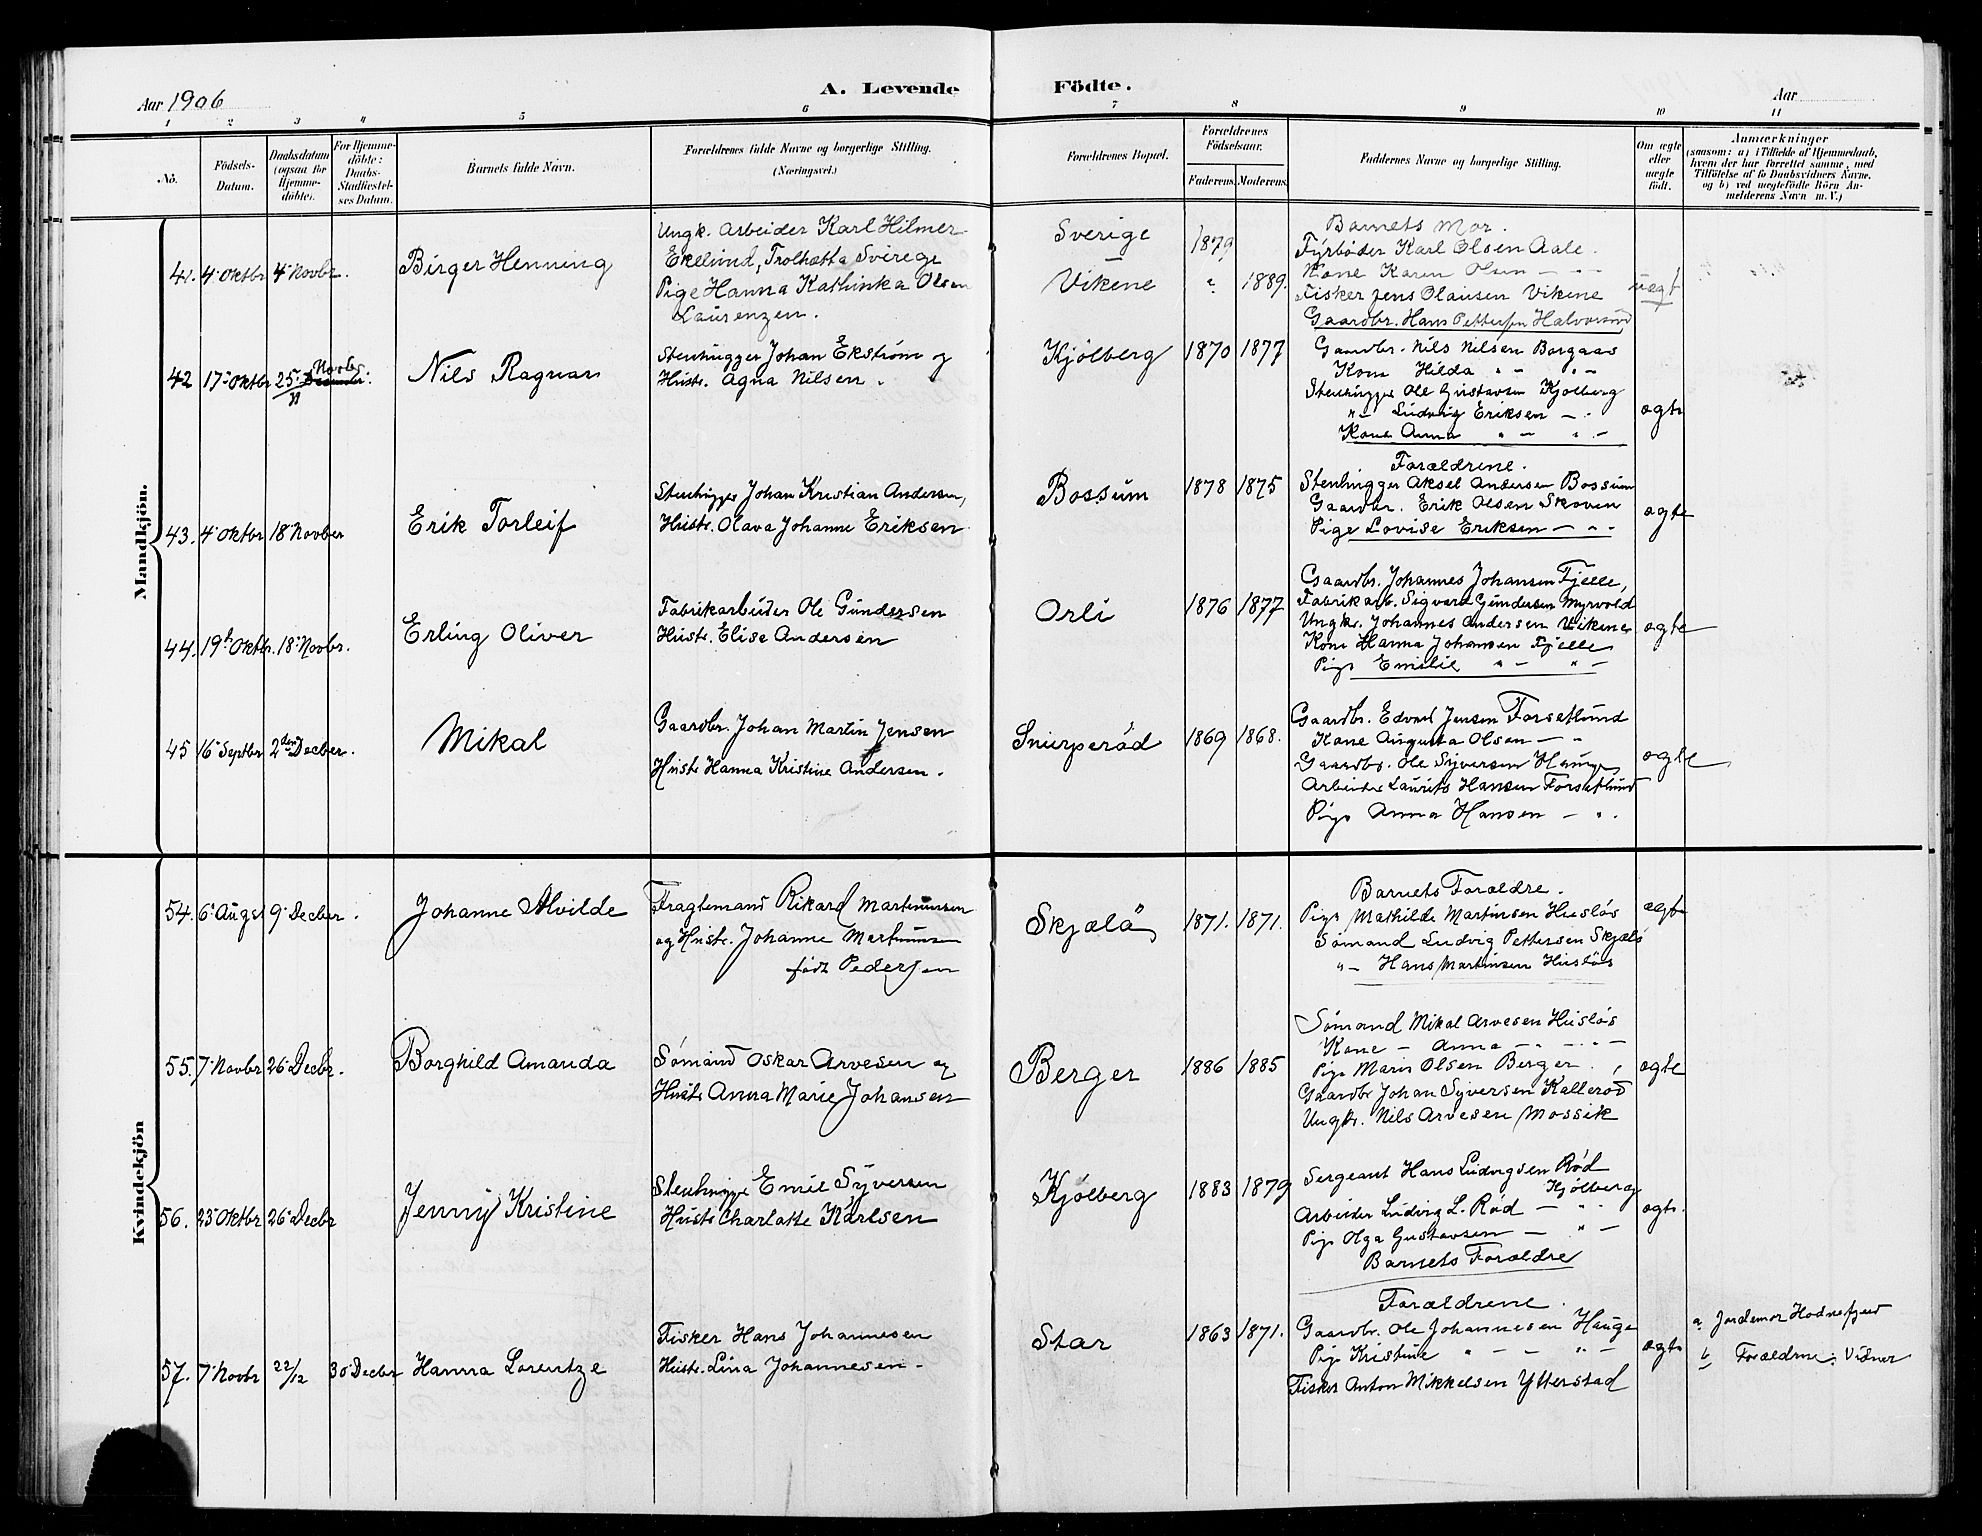 Aar 1906
A. Levende Födte.
Aar
1 2 3 4 5 6 7 8 9 10 11
No.
Födsels-Datum.
Daabsdatum (ogsaa for Hjemme-döbte).
For Hjemme-döbte: Daabs-Stadfæstel-ses Datum.
Barnets fulde Navn.
Forældrenes fulde Navne og borgerlige Stilling. (Næringsvei.)
Forældrenes Bopæl.
Forældrenes Födselsaar.
Faderens. Moderens.
Faddernes Navne og borgerlige Stilling.
Om ægte eller uægte født.
Anmærkninger
(saasom: a) i Tilfælde af Hjemmedaab,
hvem der har forrettet samme, med
Tilföielse af to Daabsvidners Navne,
og b) ved uægtefödte Börn An-
melderens Navn m. V.)
Mandkjön.
41. 4. Oktbr 4. Novbr. Birger Henning
Ungk. Arbeider Karl Hilmer
Ekelund, Trolhætta Sverege
Pige Hanna Kathinka Olsen
Laurenzen.
Sverige 1879
Vikene " 1889.
Barnets Mor.
Fyrbøder Karl Olsen Aale.
Kone Karen Olsen — " —
Fisker Jens Olausen Vikene
Gaardbr. Hans Pettersen Halvorsrød
uægt
42 17. Oktbr 25. December. Novbr Nils Ragnar
Stenhugger Johan Ekstrøm og
Hustr. Agna Nilsen.
Kjölberg 1870 1877
Gaardbr. Nils Nilsen Borgaas
Kone Hilda " — " —
Stenhugger Ole Gustavsen Kjølberg
" — Ludvig Eriksen — "
Kone Anna " — " —
ægte
43. 4. Oktbr 18 Novber Erik Torleif
Stenhugger Johan Kristian Andersen,
Hustr. Olava Johanne Eriksen
Bossum 1878 1875
Forældrene.
Stenhugger Aksel Andersen Bossum
Gaardbr. Erik Olsen Skoven
Pige Lovise Eriksen — " —
ægte
44. 19. Oktbr. 18. Novbr. Erling Oliver
Fabrikarbeider Ole Gundersen
Hustr. Elise Andersen
Orli 1876 1877
Gaardbr. Johannes Johansen Fjelle,
Fabrikarb. Sigvard Gundersen Myrvold
Ungk. Johannes Andersen Vikene
Kone Hanna Johansen Fjelle
Pige Emilie " — " —
ægte
45 16. Septbr 2den Decber. Mikal
Gaardbr. Johan Martin Jensen
Hustr Hanna Kristine Andersen.
Snurperød 1869 1868.
Gaardbr. Edvard Jensen Forsetlund
Kone Augusta Olsen — "
Gaardbr. Ole Syversen Hauge
Arbeider Laurits Hansen Forsetlund
Pige Anna Hansen — " .
ægte
Kvindekjön
54. 6. Augst 9. Decber. Johanne Alvilde
Fragtemand Rikard Martinussen
og Hustr. Johanne Martinussen
født Pedersen
Skjælö 1871. 1871.
Barnets Forældre.
Pige Mathilde Martinsen Husløs
Sømand Ludvig Pettersen Skjælö
" — Hans Martinsen Husløs
ægte
55. 7. Novbr 26. Decbr. Borghild Amanda
Sømand Oskar Arvesen og
Hustr. Anna Marie Johansen
Berger 1886 1885
Sømand Mikal Arvesen Husløs
Kone — Anna — " — " —
Pige Marie Olsen Berger.
Gaardbr Johan Syversen Kallerød
Ungk. Nils Arvesen Mossik
ægte
56. 23. Oktbr 26. Decbr Jenny Kristine
Stenhugger Emil Syversen
Hustr Charlotte Karlsen
Kjölberg 1883 1879
Sergeant Hans Ludvigsen Rød
Kjølberg
Arbeider Ludvig L. Rød — " .
Pige Olga Gustavsen — " —
Barnets Forældre
ægte.
57. 7. Novbr 22/12 30. Decbr Hanna Lorentze
Fisker Hans Johannesen
Hustr. Lina Johannesen
Star 1863 1871.
Forældrene.
Gaardbr. Ole Johannesen Hauge
Pige Kristine " — " —
Fisker Anton Mikkelsen Ytterstad
ægte
a. Jordemor Hodnefjeld
b Forældrene: Vidner